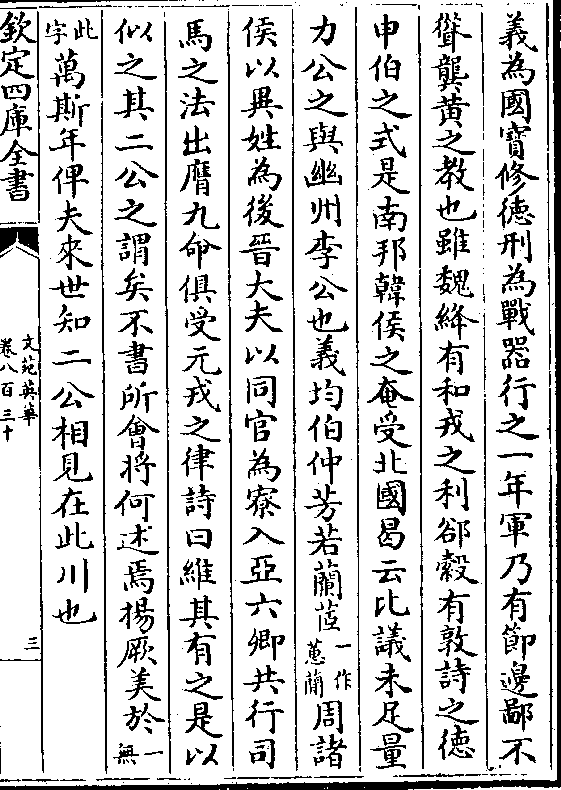 義為國寳修德刑為戰器行之一年軍乃有節邊鄙不
聳龔黄之教也雖魏絳有和戎之利郤縠有敦詩之德
申伯之式是南邦韓侯之奄受北國曷云比議未足量
力公之與幽州李公也義均伯仲芳若蘭茝一作蕙蘭周諸
侯以異姓為後晉大夫以同官為寮入亞六卿共行司
馬之法出膺九命俱受元戎之律詩曰維其有之是以
似之其二公之謂矣不書所會将何述焉揚厥美於一無
此字萬斯年俾夫來世知二公相見在此川也
欽定四庫全書
文苑英華
卷八百三十
三